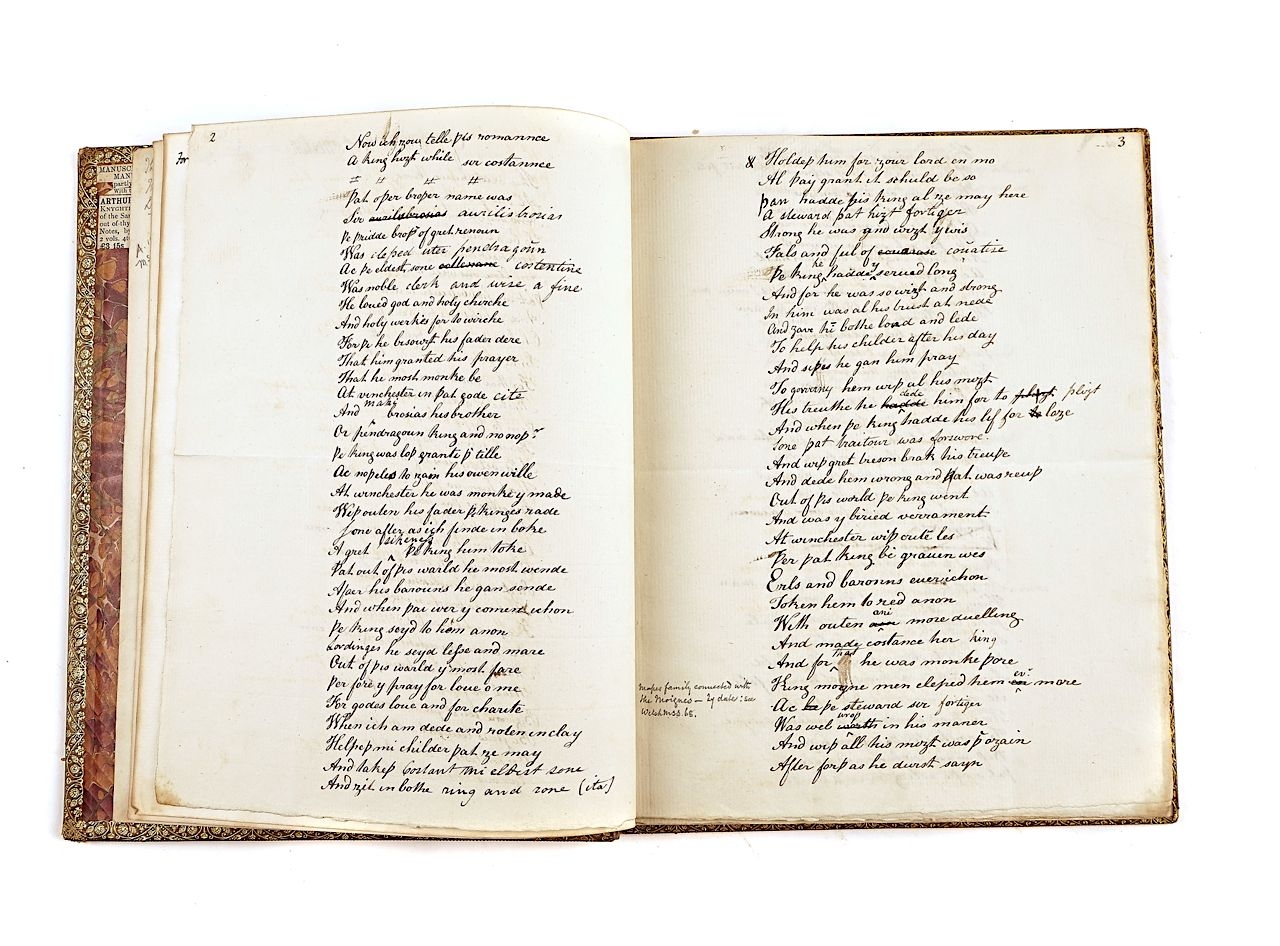 MANUSC
MAN
partly
With
ARTHUR
KNYGHT
of the Sa
out of thy
Notes, b
2 vols. 4t
£3 15s
For
2
Now ich zow telle þis romannce
A king hizt while ser costannce
þat oþer broþer name was
Sir aurilabrosias aurilis brosias
þe þridde broþ' of gret renoun
Was cleped uter pendragoūn
Ac þe eldest sone costentine
Was noble clerk and wise a fine
He loued god and holy chirche
And holy werkes for to wirche
For þe he besowzt his fader dere
That him granted his prayer
That he most monke be
At vinchester in þat gode cite
And brosias his brother
Or pendragoun king and no noþ'
þe king was loþ grante þ' tille
Ac nopeles to zain his owen wille
At winchester he was monke y made
Wiþ outen his fader þe kinges rade
Sone after as ich finde in boke
A gret sikenes þe king him toke
þat out of þis warld he most wende
After his barouns he gan sende
And when þai wer y comen echon
þe king seyd to hem anon
Lordinges he seyd lesse and mare
Out of þis warld y most fare
þer fore y pray for loue o me
For godes loue and for charite
When ich am dede and roten in clay
Helpeþ mi childer þat ze may
And takeþ Costant mi eldest sone
And zit in bothe ring and rone (ita)
3
Holdeþ him for zour lord en mo
Al þai grant it schuld be so
þan hadde þis king al ze may here
A steward þat hizt fortiger
Strong he was and wizt ywis
Fals and ful of couaase coūatise
þe king he hadde y serued long
And for he was so wizt and strong
In him was al his trust at nede
And zave hī bothe loād and lede
To help his childer after his day
And siþes he gan him pray
To governy hem wiþ al his mizt
His treuthe he hadde dede him for to plizt plizt
And when þe king hadde his lif for to loze
Sone þat traitour was forswore
And wiþ gret treson brak his treuþe
And dede hem wrong and þat was reuþ
Out of þis world þe king went
And was y biried verrament
At winchester wiþ oute les
þer þat king be grauen wes
Erls and barouns euerichon
Token hem to red anon
With outen ani more duelling
And made costance her king
And for that he was monke þore
King moyne men cleped hem ev' more
Ac þe steward sir fortiger
Was wel wroþ in his maner
And wiþ all his mizt was þ' ozain
After forþ as he durst sayn
Mapes family connected with
the Moignes — by date: see
Welsh MSS. 68.